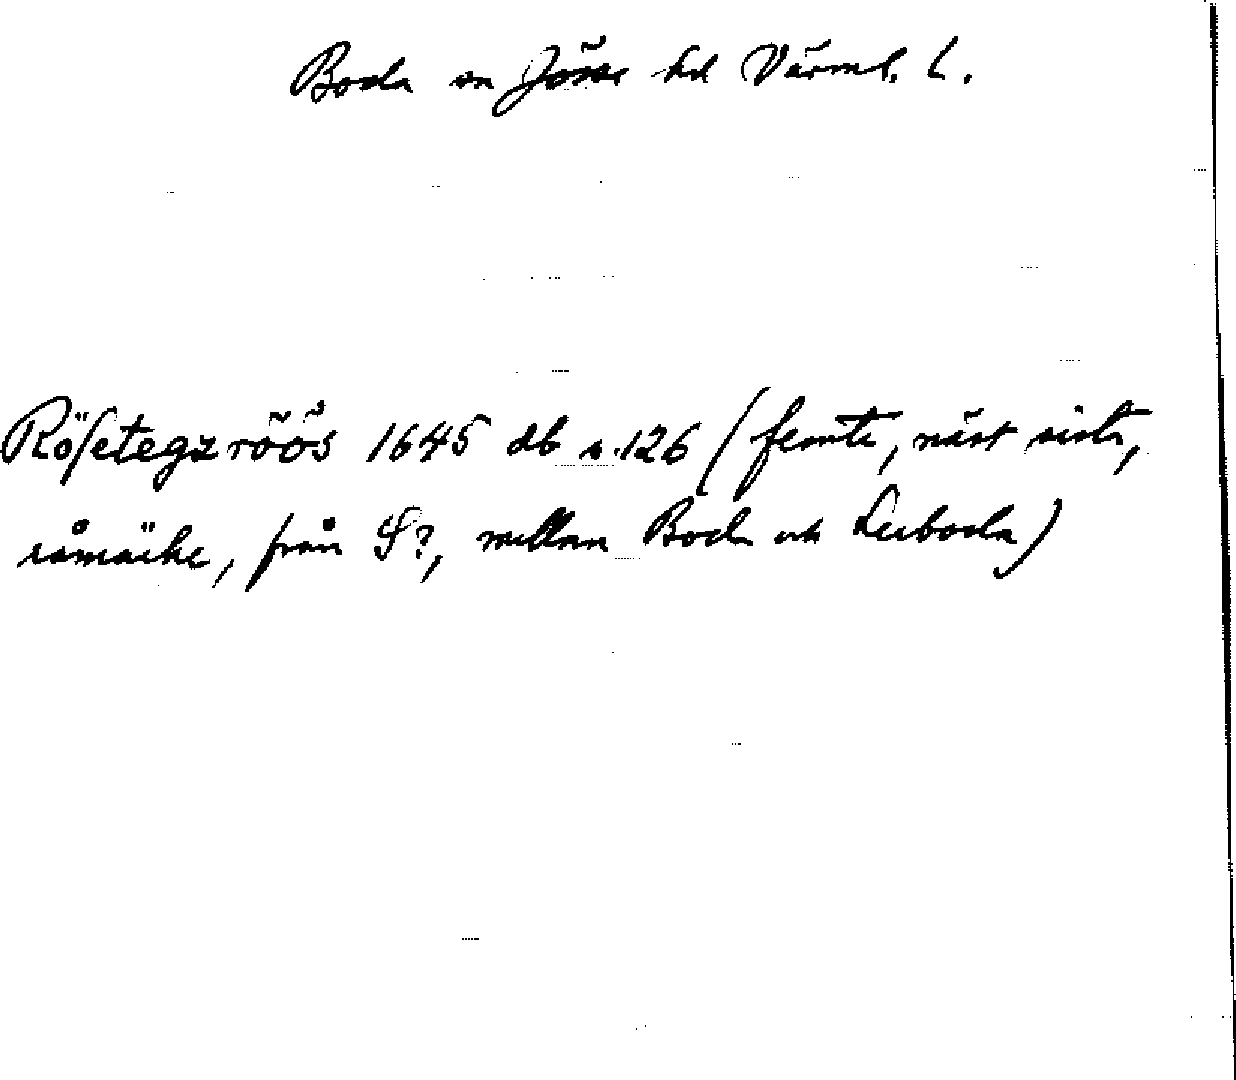 Boda sn Jösse hd Värml. L.
Röſetegz röös 1645 db s. 126 (femte, näst sista,
råmärke, från S?, mellan Boda och Lerboda)